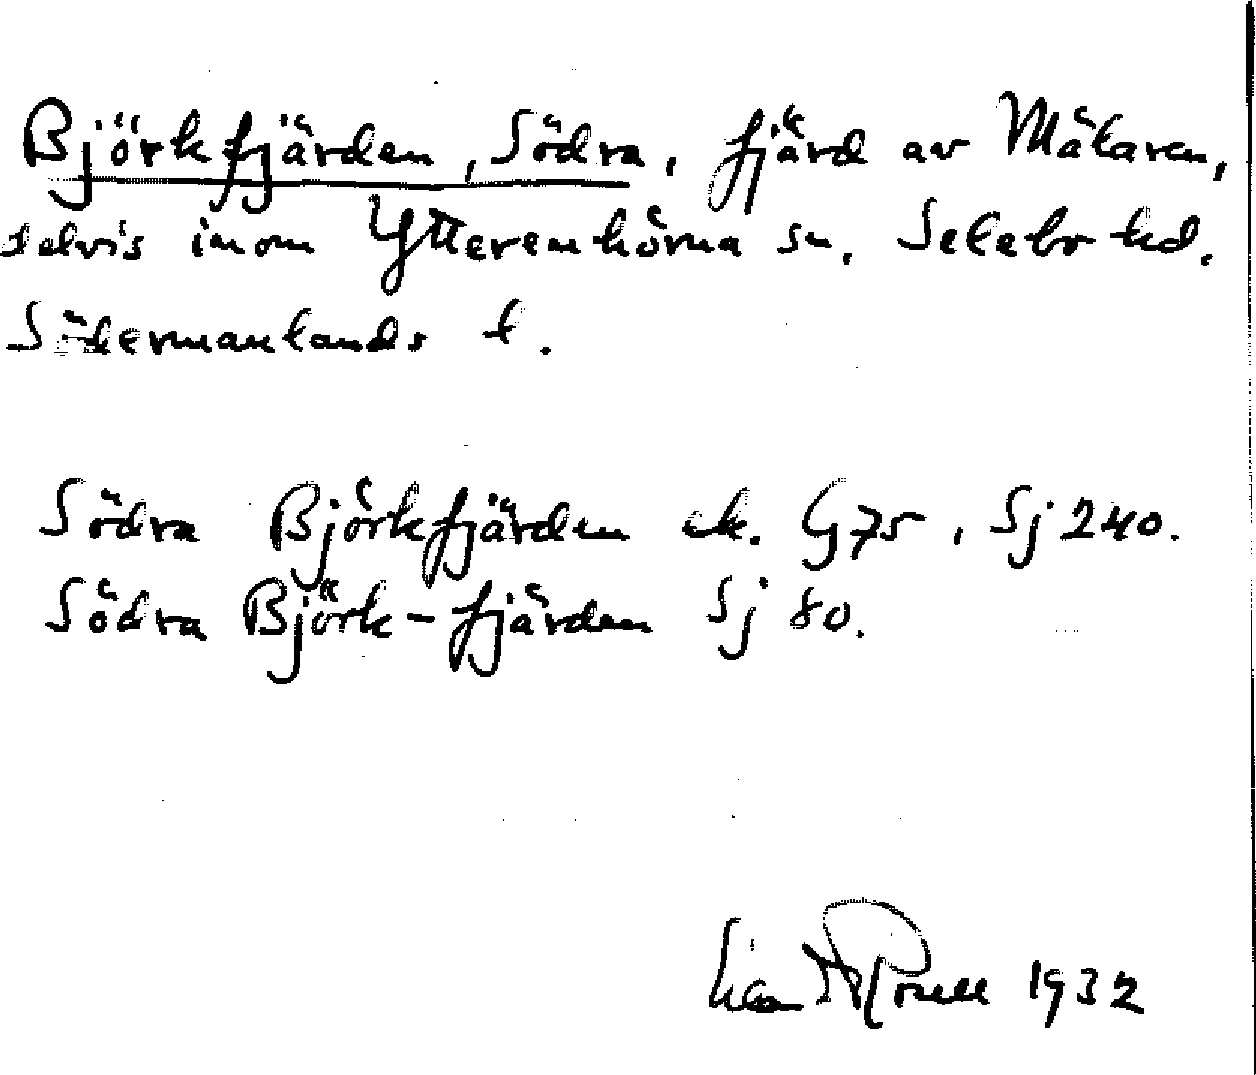 Björkfjärden, Södra, fjärd av Mälaren,
delvis inom Ytterenhörna sn, Selebo hd.
Södermanlands l.
Södra Björkfjärden ek. G75, Sj 240.
Södra Björk-fjärden Sj 80.
1932